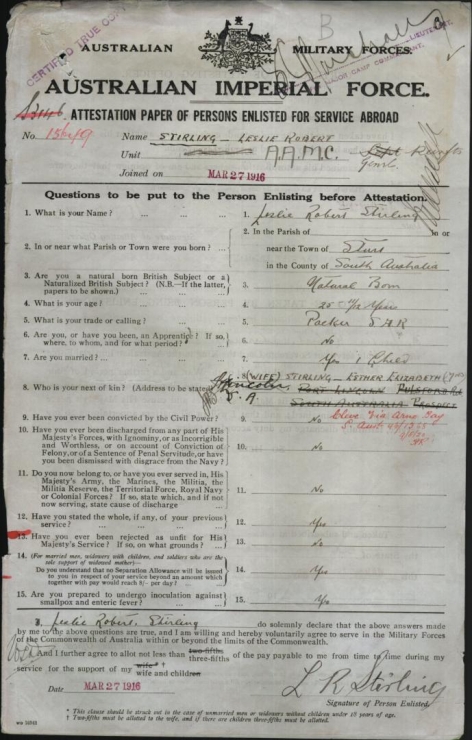 CERTIFIED TRUE COPY
B
AUSTRALIAN MILITARY FORCES.
AUSTRALIAN IMPERIAL FORCE.
ATTESTATION PAPER OF PERSONS ENLISTED FOR SERVICE ABROAD
No. Name STIRLING - LESLIE ROBERT
Unit A.A.M.C.
Joined on MAR 27 1916
Questions to be put to the Person Enlisting before Attestation.
1. What is your Name? ... ... ... 1. Leslie Robert Stirling
2. In or near what Parish or Town were you born? ... 2. In the Parish of in or
near the Town of Sturt
in the County of South Australia
3. Are you a natural born British Subject or a
Naturalized British Subject? (N.B.—If the latter,
papers to be shown.) 3. Natural Born
4. What is your age? ... ... ... 4. 25 Years
5. What is your trade or calling? ... ... 5. Packer S A R
6. Are you, or have you been, an Apprentice? If so,
where, to whom, and for what period? 6. No
7. Are you married? ... ... ... 7. Yes 1 Child
8. Who is your next of kin? (Address to be stated) 8. (WIFE) STIRLING - ESTHER ELIZABETH
S.A. PORT LINCOLN
SOUTH AUSTRALIA PROSPECT
9. Have you ever been convicted by the Civil Power? 9. No Cleve Via Arno Bay
S. Aust
10. Have you ever been discharged from any part of His
Majesty's Forces, with Ignominy, or as Incorrigible
and Worthless, or on account of Conviction of
Felony, or of a Sentence of Penal Servitude, or have
you been dismissed with disgrace from the Navy? 10. No
11. Do you now belong to, or have you ever served in, His
Majesty's Army, the Marines, the Militia, the
Militia Reserve, the Territorial Force, Royal Navy
or Colonial Forces? If so, state which, and if not
now serving, state cause of discharge 11. No
12. Have you stated the whole, if any, of your previous
service? ... ... ... 12. Yes
13. Have you ever been rejected as unfit for His
Majesty's Service? If so, on what grounds? 13. No
14. (For married men, widowers with children, and soldiers who are the
sole support of widowed mother)—
Do you understand that no Separation Allowance will be issued
to you in respect of your service beyond an amount which
together with pay would reach 8/- per day? 14. Yes
15. Are you prepared to undergo inoculation against
smallpox and enteric fever? 15. Yes
I, Leslie Robert Stirling do solemnly declare that the above answers made
by me to the above questions are true, and I am willing and hereby voluntarily agree to serve in the Military Forces
of the Commonwealth of Australia within or beyond the limits of the Commonwealth.
And I further agree to allot not less than two-fifths three-fifths of the pay payable to me from time to time during my
service for the support of my wife † wife and children
Date MAR 27 1916 L R Stirling
Signature of Person Enlisted.
* This clause should be struck out in the case of unmarried men or widowers without children under 18 years of age.
† Two-fifths must be allotted to the wife, and if there are children three-fifths must be allotted.